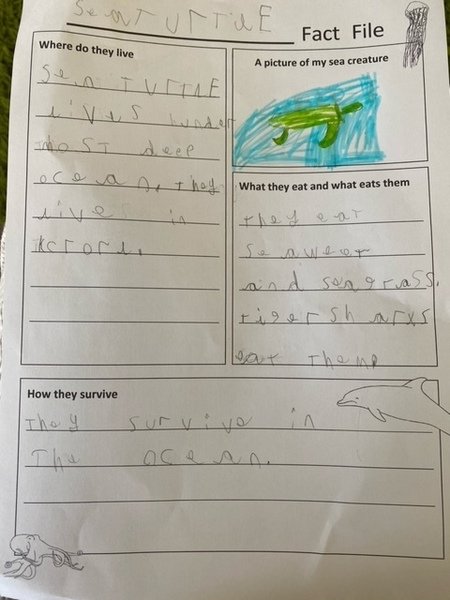 SeaTURTLE Fact File
Where do they live
Sea TURTLE
lives hunder
most deep
ocean. they
live in
A picture of my sea creature
What they eat and what eats them
they eat
seaweet
and seagrass.
tiger sharks
eat them
How they survive
They survive in
The ocean.